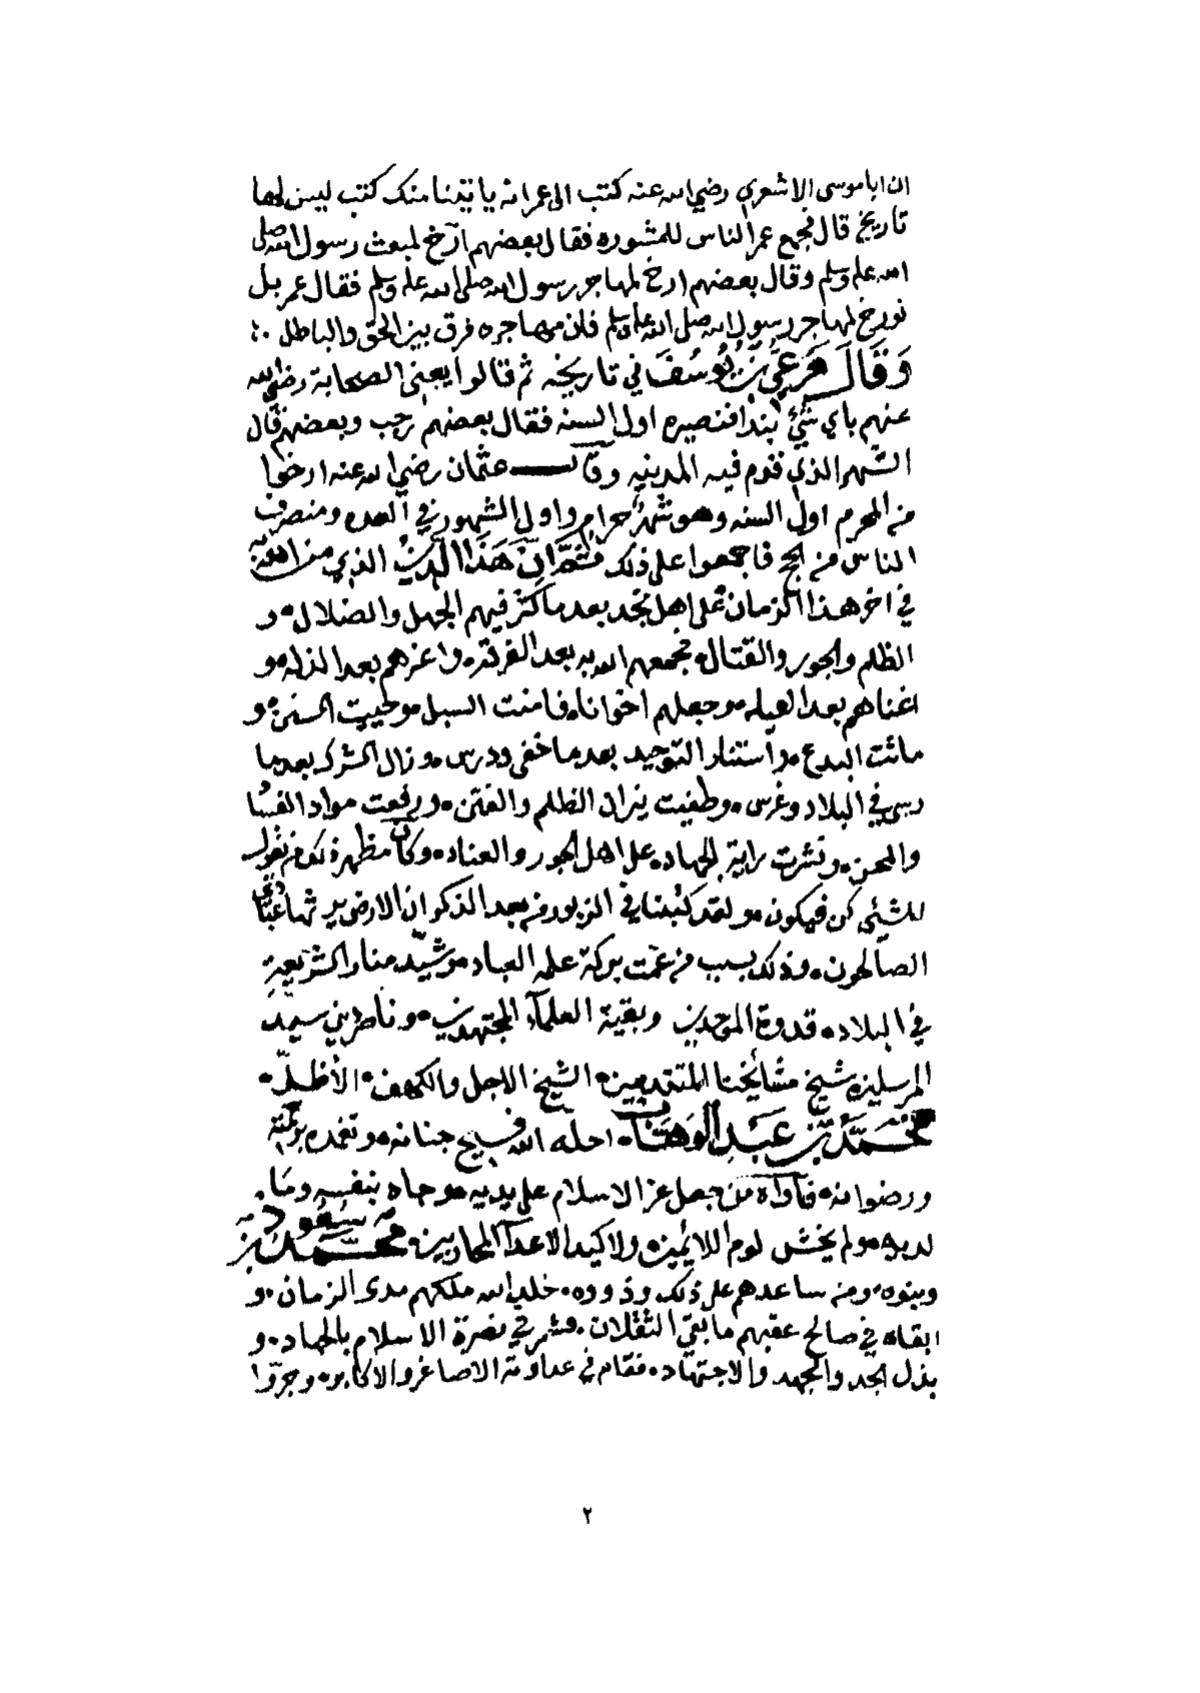 ان ابا موسى الاشعري رضي الله عنه كتب الى عمر انه ياتينا منك كتب ليس لها
تاريخ قال فجمع عمر الناس للمشوره فقال بعضهم أرخ لمبعث رسول الله صلى
الله عليه وسلم وقال بعضهم ارخ لمهاجر رسول الله صلى الله عليه وسلم فقال عمر بل
نورخ لمهاجر رسول الله صلى الله عليه وسلم فان مهاجره فرق بين الحق والباطل
وَقَالَ مَرعيُّ بنُ يُوسُفَ في تاريخه ثم قالوا يعني الصحابة رضي الله
عنهم باي شئ نبدا فنصيره اول السنه فقال بعضهم رجب وبعضهم قال
الشهر الذي قدم فيه المدينه وقال عثمان رضي الله عنه ارخوا
من المحرم اول السنه وهو شهر حرام واول الشهور في العده ومنصرف
الناس من الحج فاجمعوا على ذلك ثم ان هذا الدين الذي من الله به
في اخر هذا الزمان على اهل نجد بعد ما كثر فيهم الجهل والضلال و
الظلم والجور والقتال فجمعهم الله به بعد الفرقة واعزهم بعد الذله و
اغناهم بعد العيله وجعلهم اخوانا فامنت السبل وحييت السنن و
ماتت البدع واستنار التوحيد بعد ما خفى ودرس وزال الشرك بعد ما
رسى في البلاد وغرس وطفيت نيران الظلم والفتن ورفعت مواد الفساد
والمحن ونشرت راية الجهاد على اهل الجور والعناد وكان مظهر ذلك من يقول
للشئ كن فيكون ولقد كتبنا في الزبور من بعد الذكر ان الارض يرثها عبادي
الصالحون وذلك بسبب من عمت بركة علمه العباد وشيّد منار الشريعة
في البلاد قدوة الموحدين وبقية العلمآء المجتهدين وناصر دين سيد
المرسلين شيخ مشائخنا المتقدمين الشيخ الاجل والكهف الأظلّ
محمد بن عبد الوهاب احله الله فسيح جنانه وتغمده برحمته
ورضوانه فآواه من جعل عز الاسلام على يديه وجاد بنفسه وما
لديه ولم يخش لوم اللائمين ولا كيد الاعدآ المحاربين محمد بن سعود
وبنوه ومن ساعدهم على ذلك وذووه خلد الله ملكهم مدى الزمان و
ابقاه في صالح عقبهم ما بقي الثقلان فشمر في نصرة الاسلام بالجهاد و
بذل الجد والجهد والاجتهاد فقام في عداوته الاصاغر والاكابر وجرّوا
٢